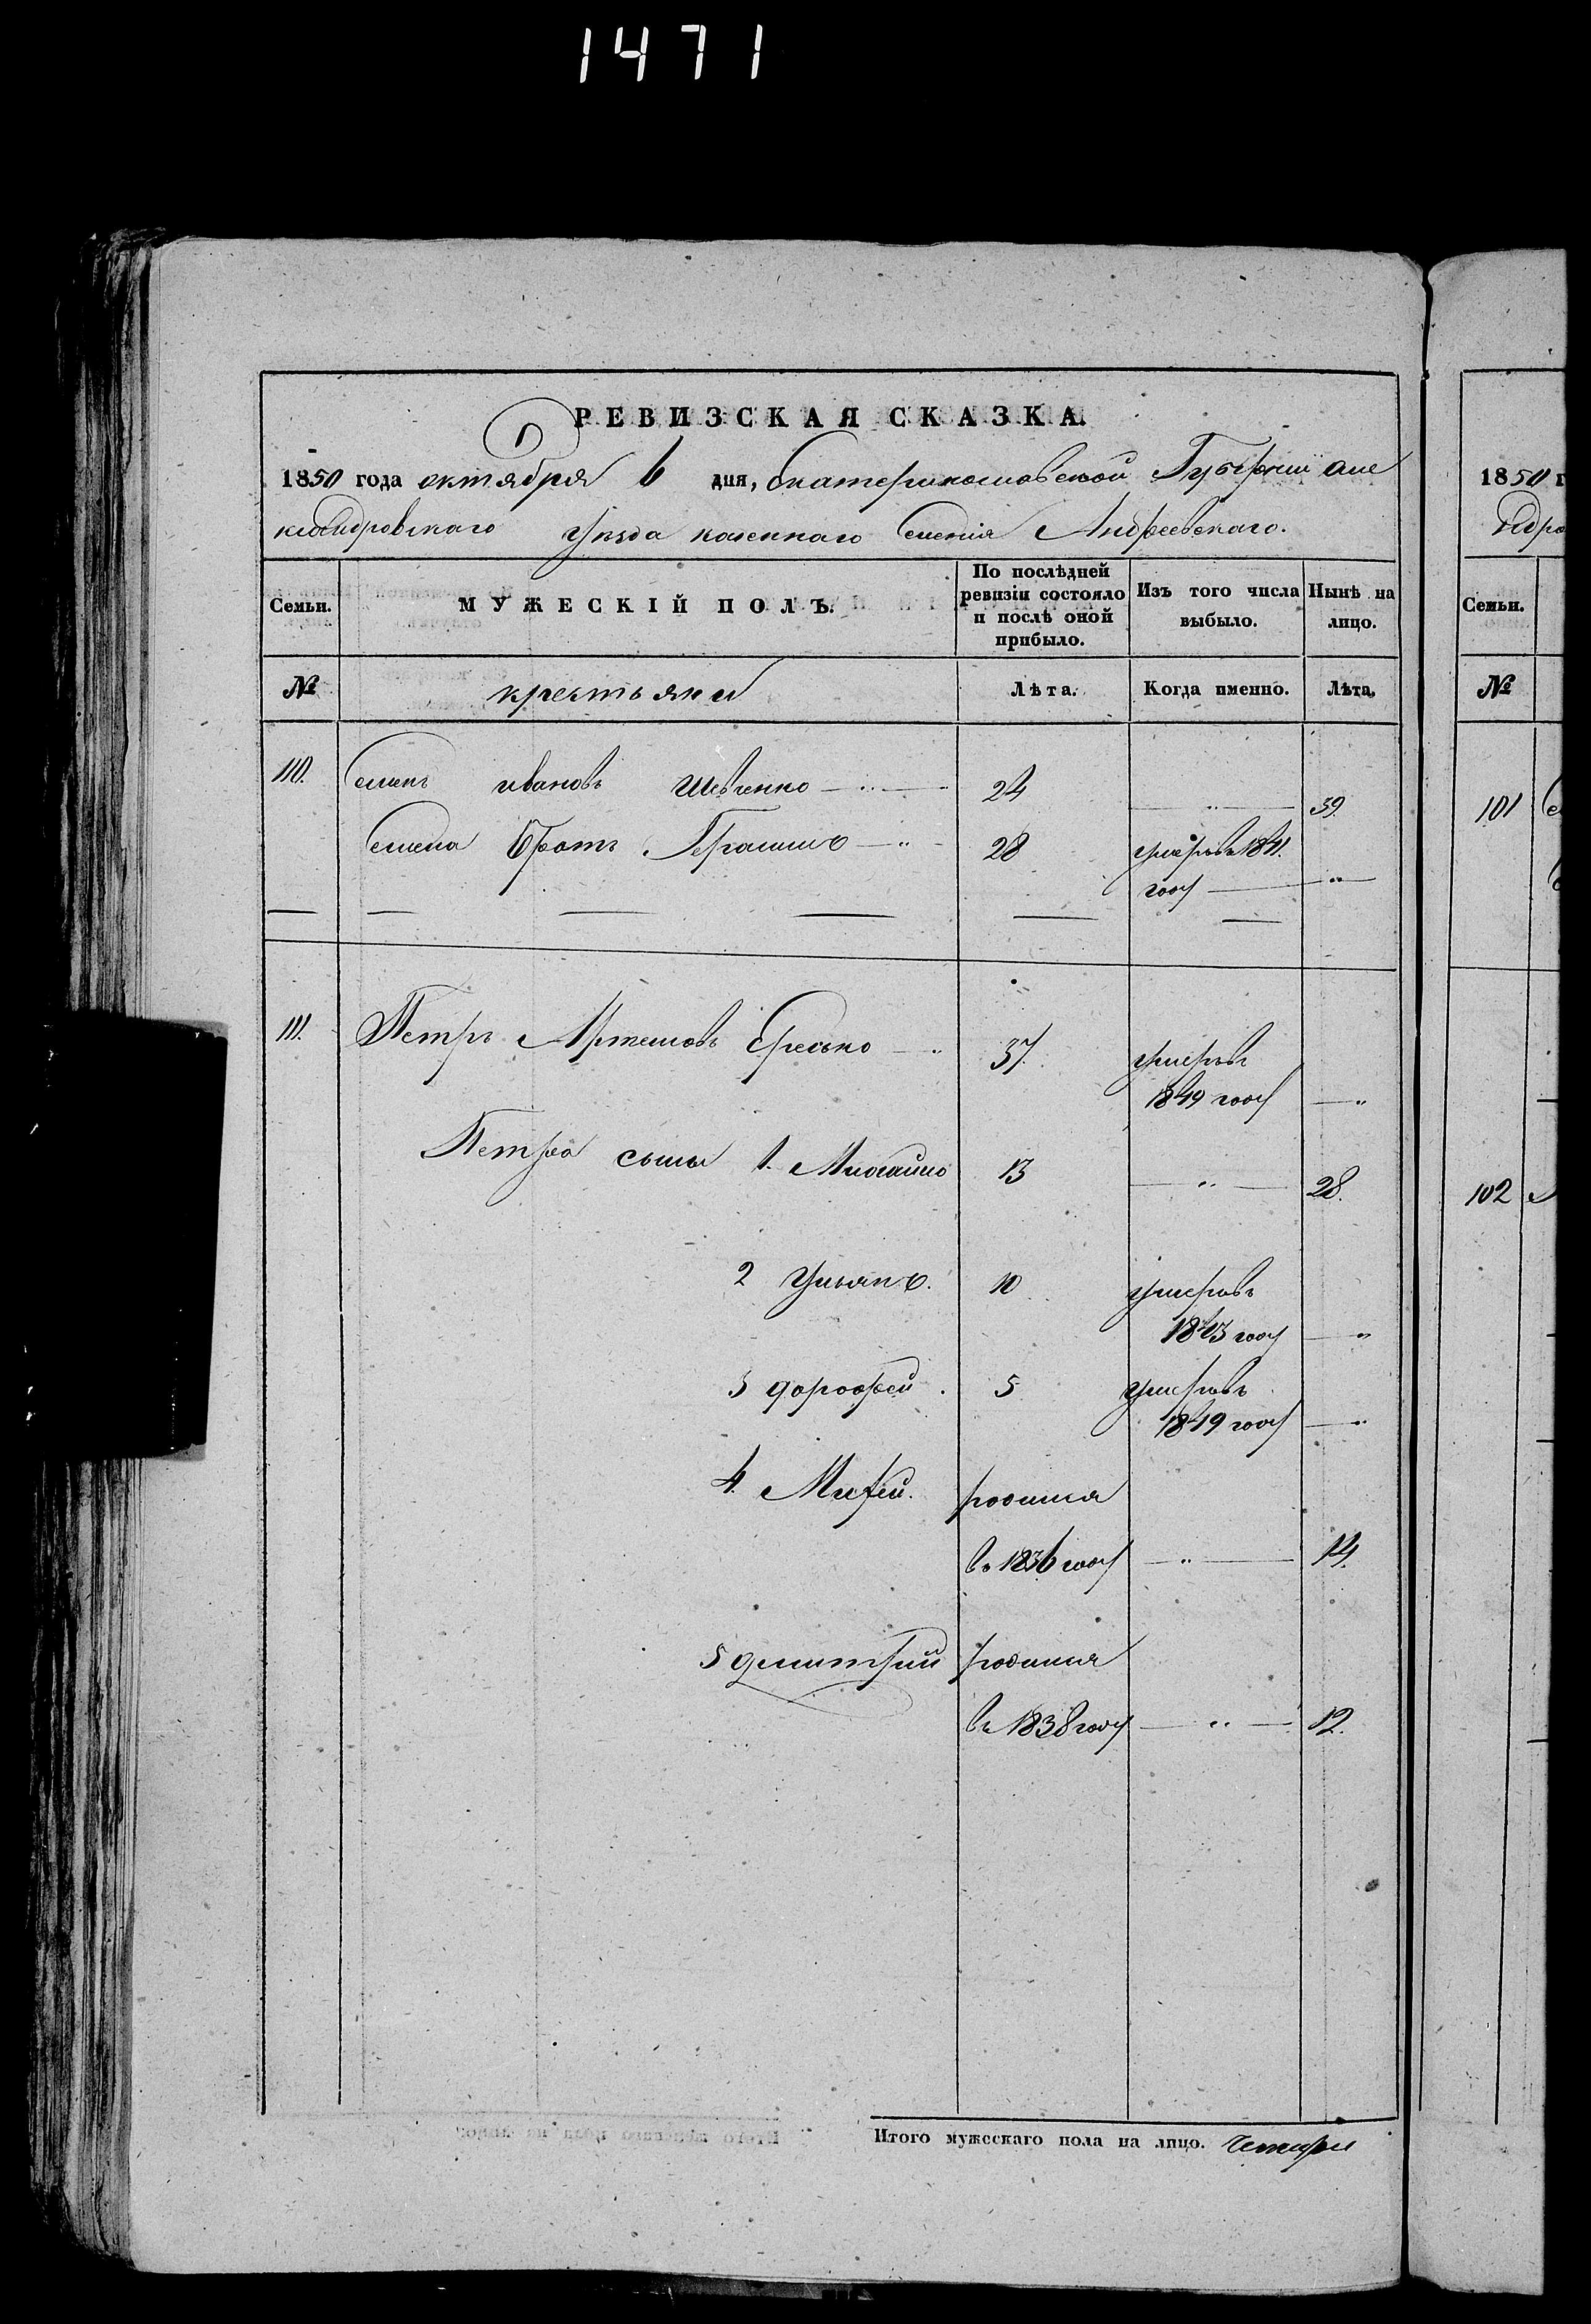 1471
РЕВИЗСКАЯ СКАЗКА.
1850 года октября 6 дня, Екатеринославской Губернiи але
ксандровского уезда казенного Селения Андреевского.
Семьи.
МУЖЕСКІЙ ПОЛЪ.
По послѣдней ревизіи состояло и послѣ оной прибыло.
Изъ того числа выбыло.
Нынѣ на лицо.
№ крестьяни Лѣта. Когда именно. Лѣта.
110. Семенъ ивановъ Шевченко 24 39.
Семена братъ Герасимъ 28 умеръ въ 1841.
году
111. Петръ Артемовъ Ересько 37. умеръ въ
1849 году
Петра сыны 1. Михайло 13 28.
2 Ульянъ. 10 умеръ въ
1843 году
3 дорофей. 5 умеръ въ
1849 году
4. Михей. родился
въ 1836 году 14.
5 дмитрий родился
въ 1838 году 12.
Итого мужескаго пола на лицо. Четыри
1850 г
ндро
Семьи.
№
101
102